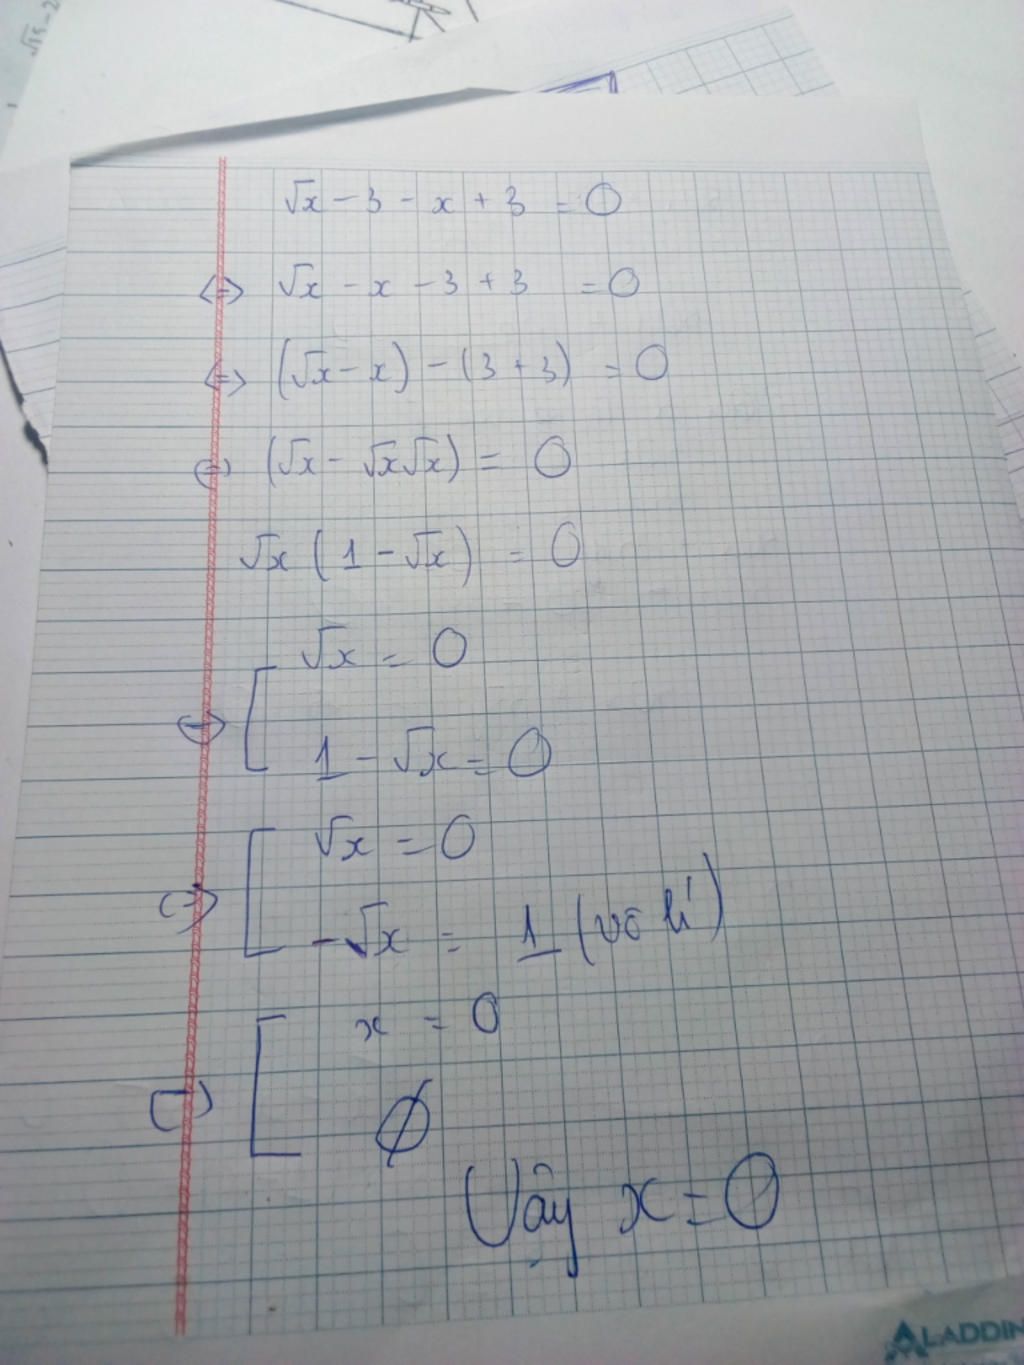 √15-2
√x - 3 - x + 3 = 0
<=> √x - x - 3 + 3 = 0
<=> (√x - x) - (3 + 3) = 0
<=> (√x - √x√x) = 0
√x (1 - √x) = 0
<=> [ √x = 0
1 - √x = 0
<=> [ √x = 0
-√x = 1 (vô lí)
<=> [ x = 0
∅
Vậy x = 0
ALADDIN